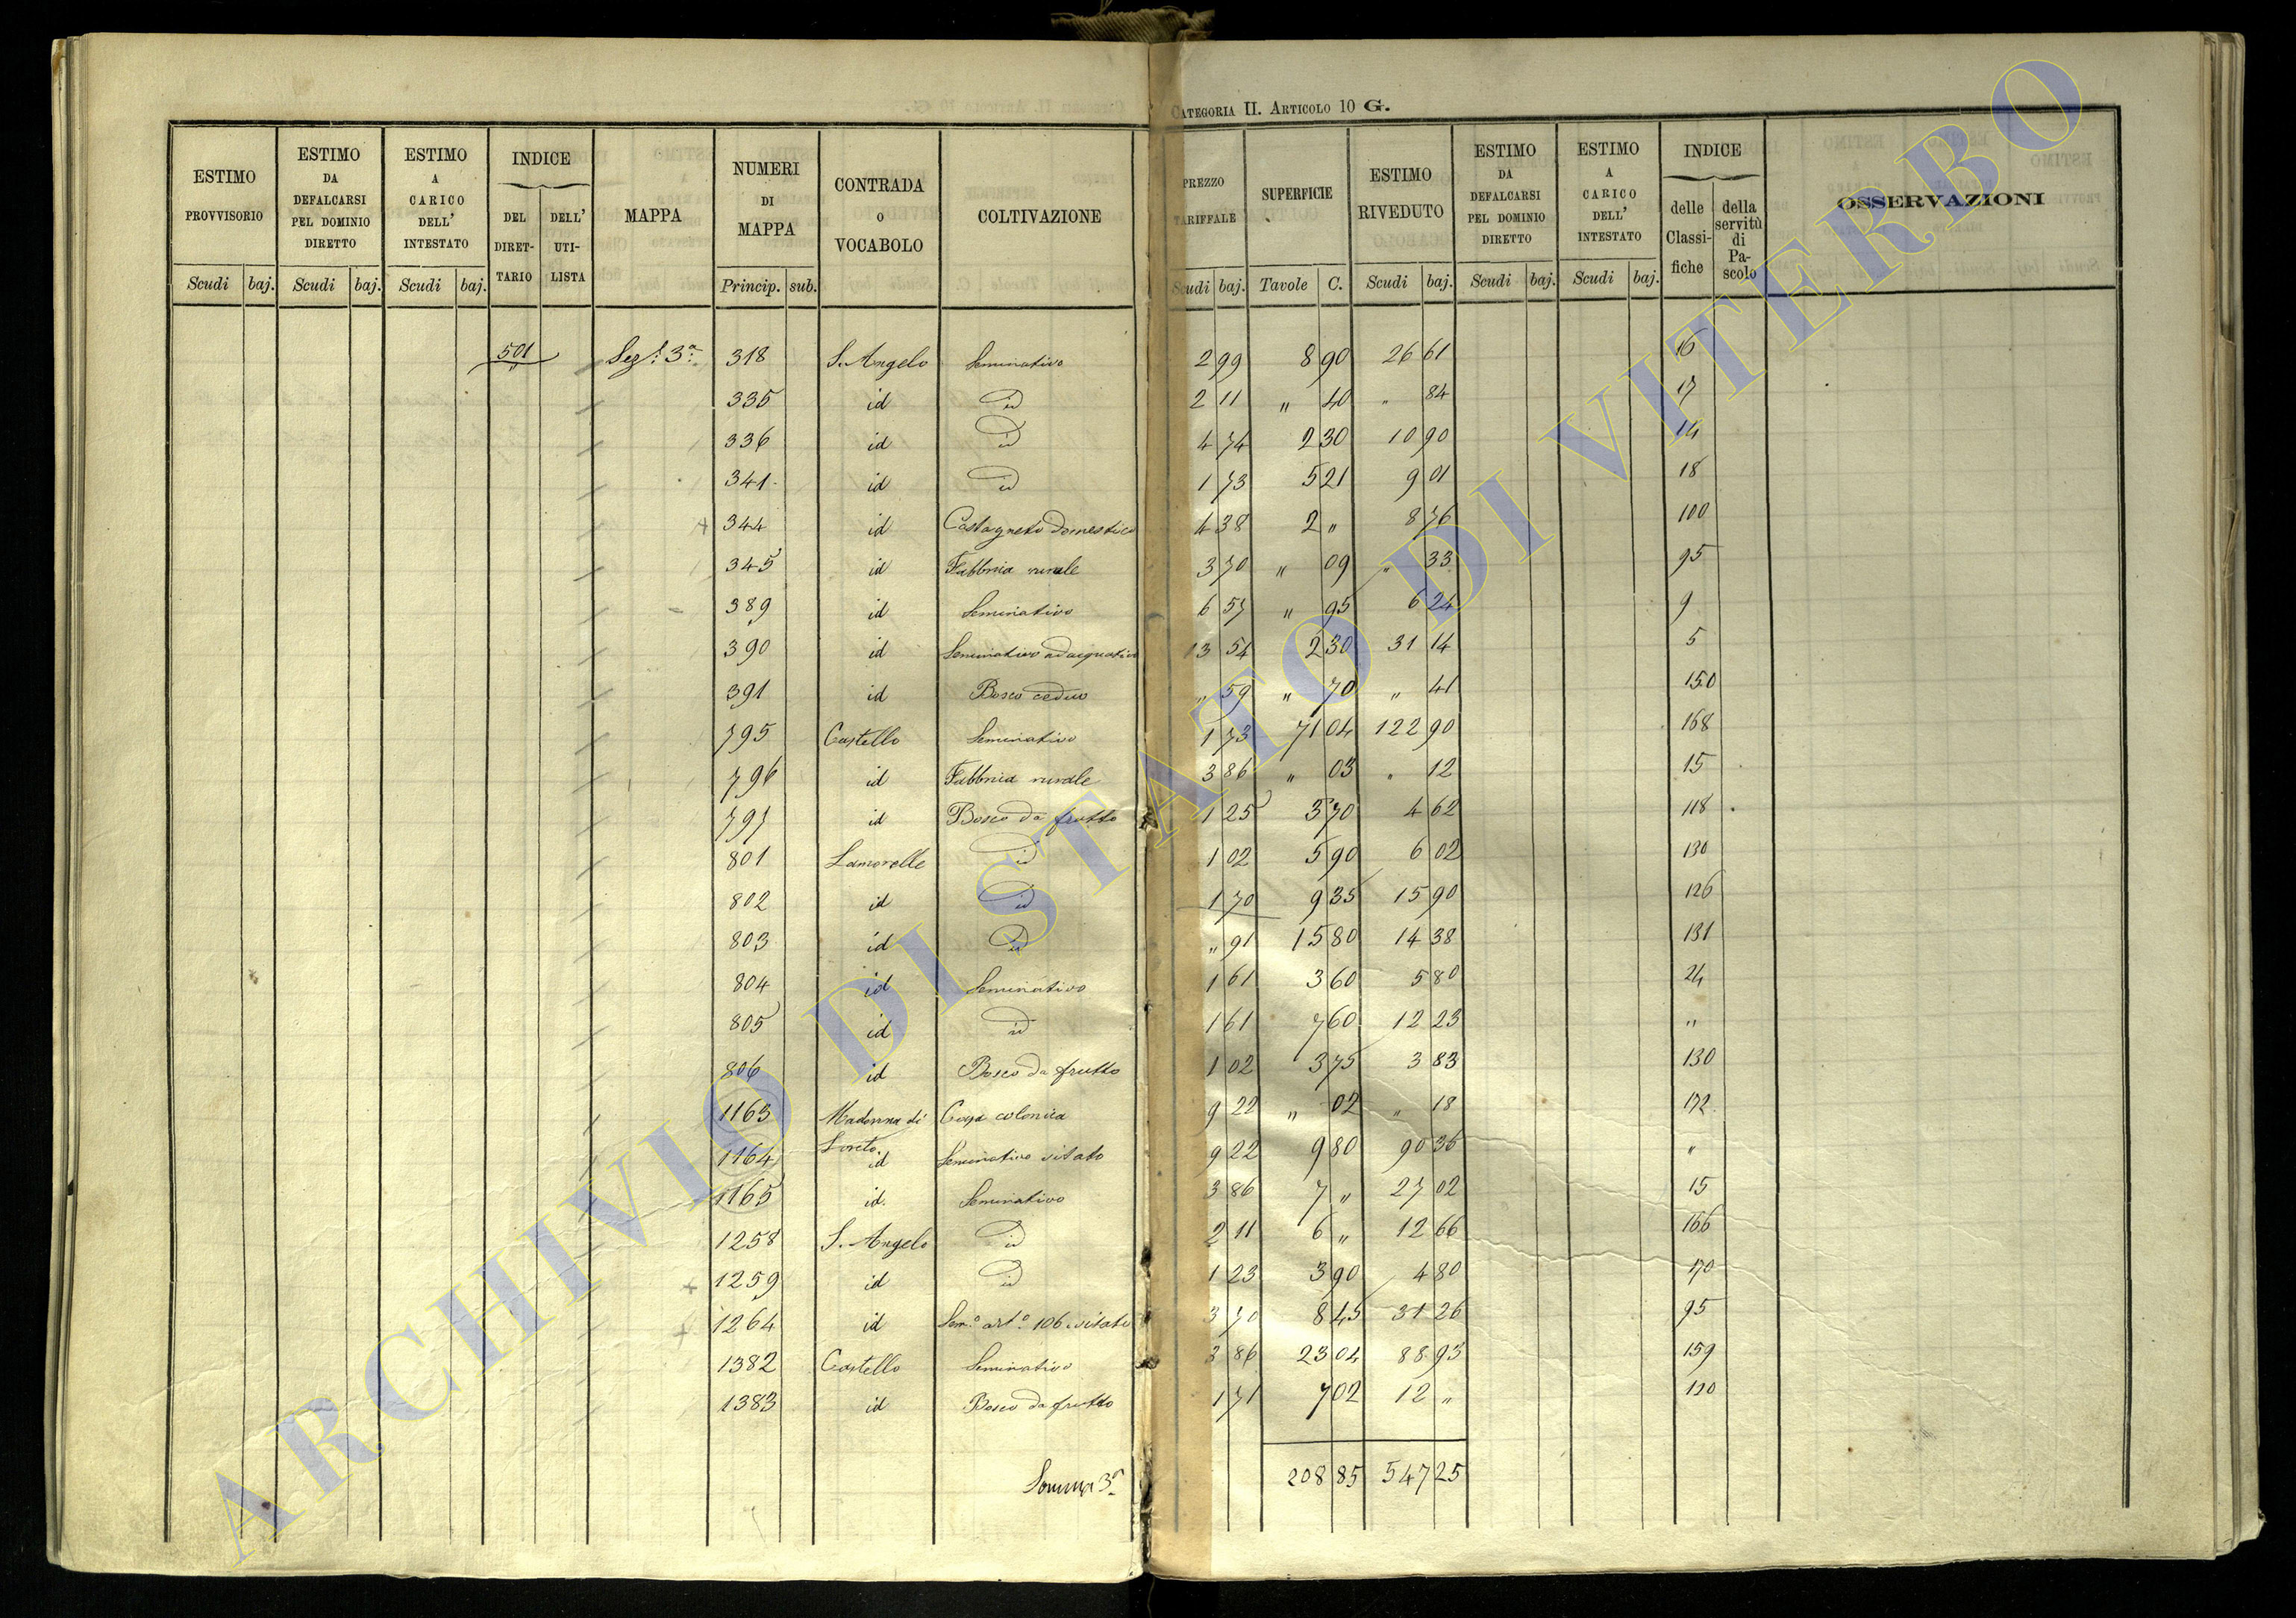 CATEGORIA II. ARTICOLO 10 G.
ESTIMO PROVVISORIO Scudi baj.
ESTIMO DA DEFALCARSI PEL DOMINIO DIRETTO Scudi baj.
ESTIMO A CARICO DELL' INTESTATO Scudi baj.
INDICE DEL DIRET-TARIO DELL' UTI-LISTA
MAPPA
NUMERI DI MAPPA Princip. sub.
CONTRADA O VOCABOLO
COLTIVAZIONE
PREZZO TARIFFALE Scudi baj.
SUPERFICIE Tavole C.
ESTIMO RIVEDUTO Scudi baj.
ESTIMO DA DEFALCARSI PEL DOMINIO DIRETTO Scudi baj.
ESTIMO A CARICO DELL' INTESTATO Scudi baj.
INDICE delle Classi-fiche della servitù di Pa-scolo
OSSERVAZIONI
501 Sez. 3a 318 S. Angelo Seminativo 2 99 8 90 26 61 16
335 id id 2 11 " 40 " 84 17
336 id id 4 74 2 30 10 90 14
341 id id 1 73 5 21 9 01 18
344 id Castagneto domestico 4 38 2 " 8 76 100
345 id Fabbrica rurale 3 70 " 09 " 33 95
389 id Seminativo 6 57 " 95 6 24 9
390 id Seminativo adacquativo 13 54 2 30 31 14 5
391 id Bosco ceduo " 59 " 70 " 41 150
795 Castello Seminativo 1 73 71 04 122 90 168
796 id Fabbrica rurale 3 86 " 03 " 12 15
797 id Bosco da frutto 1 25 3 70 4 62 118
801 Lamorelle id 1 02 5 90 6 02 130
802 id id 1 70 9 35 15 90 126
803 id id " 91 15 80 14 38 131
804 id Seminativo 1 61 3 60 5 80 24
805 id id 1 61 7 60 12 23 "
806 id Bosco da frutto 1 02 3 75 3 83 130
1163 Madonna di Loreto Casa colonica 9 22 " 02 " 18 172
1164 id Seminativo vitato 9 22 9 80 90 36 "
1165 id. Seminativo 3 86 7 " 27 02 15
1258 S. Angelo id 2 11 6 " 12 66 166
1259 id id 1 23 3 90 4 80 170
1264 id Sem.o art.o 106 vitato 3 70 8 45 31 26 95
1382 Castello Seminativo 3 86 23 04 88 93 159
1383 id Bosco da frutto 1 71 7 02 12 "
Somma 3a 208 85 547 25
ARCHIVIO DI STATO DI VITERBO